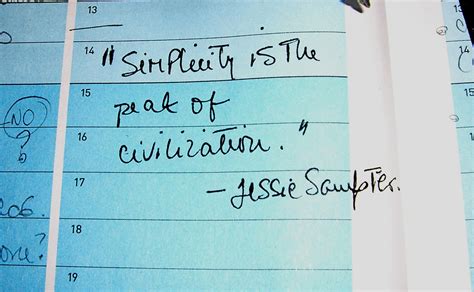 13
14 "Simplicity is the
15 peak of
NO
16 civilization."
? - Jessie Sampter.
206.
18
one?
19